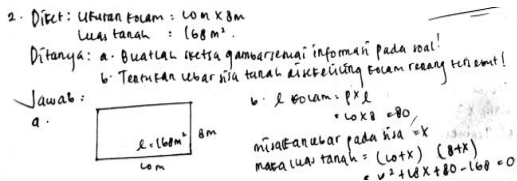 2. Diket : Ukuran kolam : 10 m x 8m
Luas tanah : 168 m².
Ditanya : a. Buatlah sketsa gambar sesuai informasi pada soal!
b. Tentukan lebar sisa tanah disekeliling kolam renang tersebut!
Jawab :
a.
l = 168m²
8m
10m
b. l kolam = p x l
= 10 x 8 = 80
misalkan lebar pada sisa = x
maka luas tanah = (10+x) (8+x)
= x² + 18x + 80 - 168 = 0